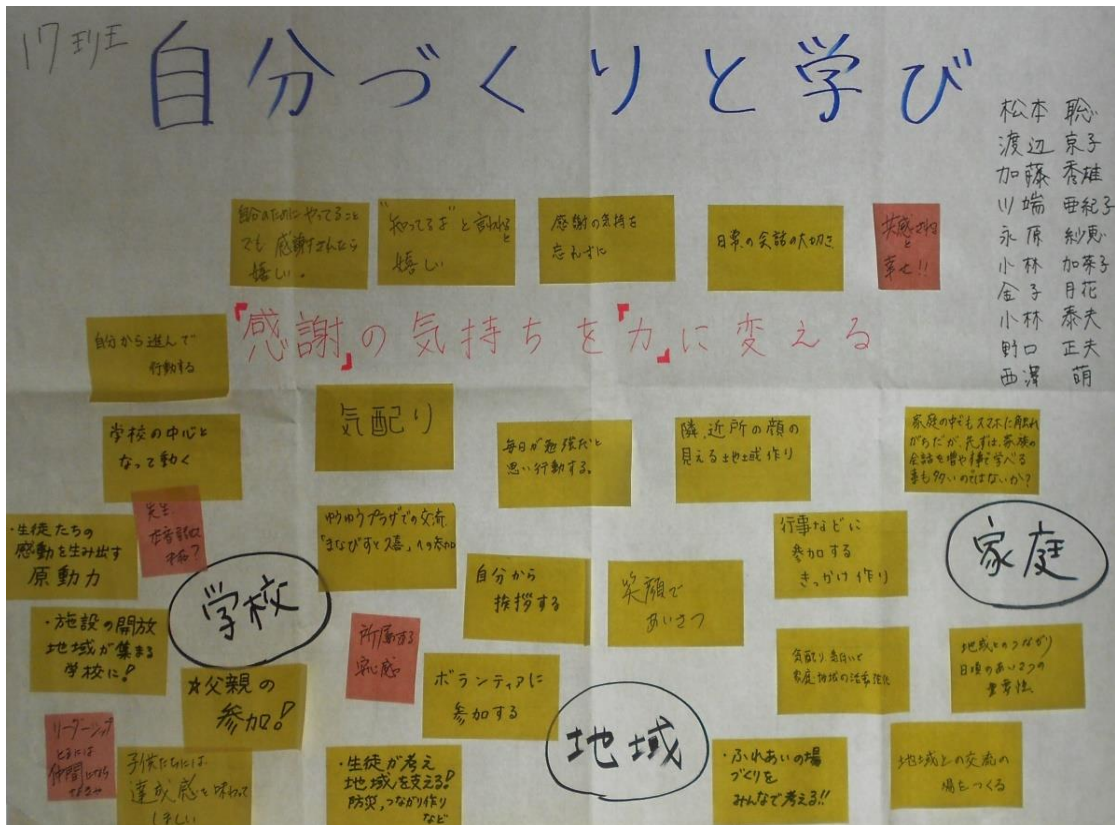 17班
自分づくりと学び
松本 聡
渡辺 京子
加藤 秀雄
川端 亜紀子
永原 紗恵
小林 加菜子
金子 月花
小林 泰夫
野口 正夫
西澤 萌
自分のためにやってること
でも感謝されたら
嬉しい。
"知ってるよ"と言われると
嬉しい
感謝の気持を
忘れずに
日常の会話の大切さ
共感されると
幸せ!!
『感謝』の気持ちを『力』に変える
自分から進んで
行動する
学校の中心と
なって動く
気配り
毎日が勉強だと
思い行動する。
隣、近所の顔の
見える地域作り
家庭の中でもスマホに触れ
がちだが、先ずは、家族の
会話を増や事で学べる
事も多いのではないか?
・生徒たちの
感動を生み出す
原動力
先生
ゆうゆうプラザでの交流
行事などに
参加する
きっかけ作り
家庭
学校
自分から
挨拶する
笑顔で
あいさつ
・施設の開放
地域が集まる
学校に!
所属する
☆父親の
参加!
ボランティアに
参加する
地域とのつながり
日頃のあいさつの
重要性
リーダーシップ
ときには
仲間
地域
子供たちには
達成感を味わって
ほしい
・生徒が考え
地域を支える!
防災,つながり作り
など
・ふれあいの場
づくりを
みんなで考える!!
地域との交流の
場をつくる